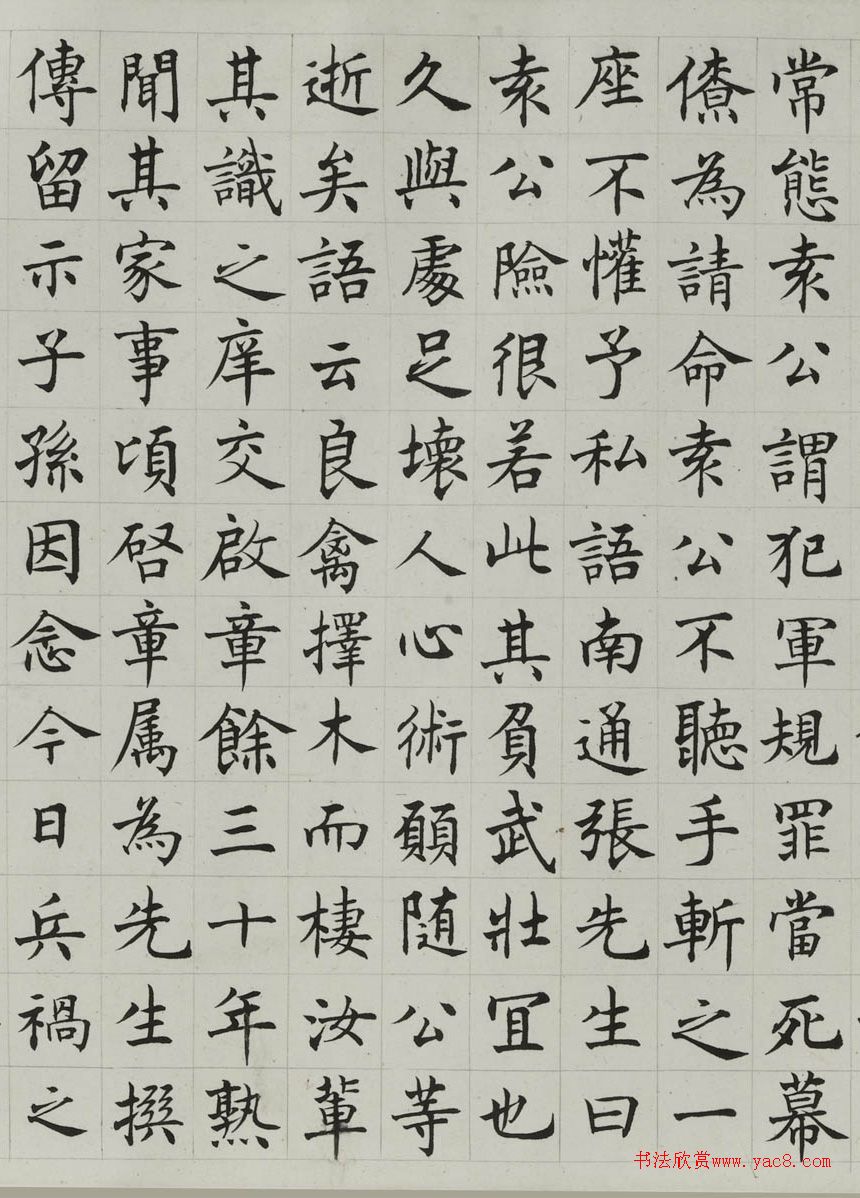 常態袁公謂犯軍規罪當死幕
僚為請命袁公不聽手斬之一
座不懽予私語南通張先生曰
袁公險很若此其負武壯宜也
久與處足壞人心術願随公等
逝矣語云良禽擇木而棲汝輩
其識之庠交啟章餘三十年熟
聞其家事頃啓章属為先生撰
傳留示子孫因念今日兵禍之
书法欣赏www.yac8.com